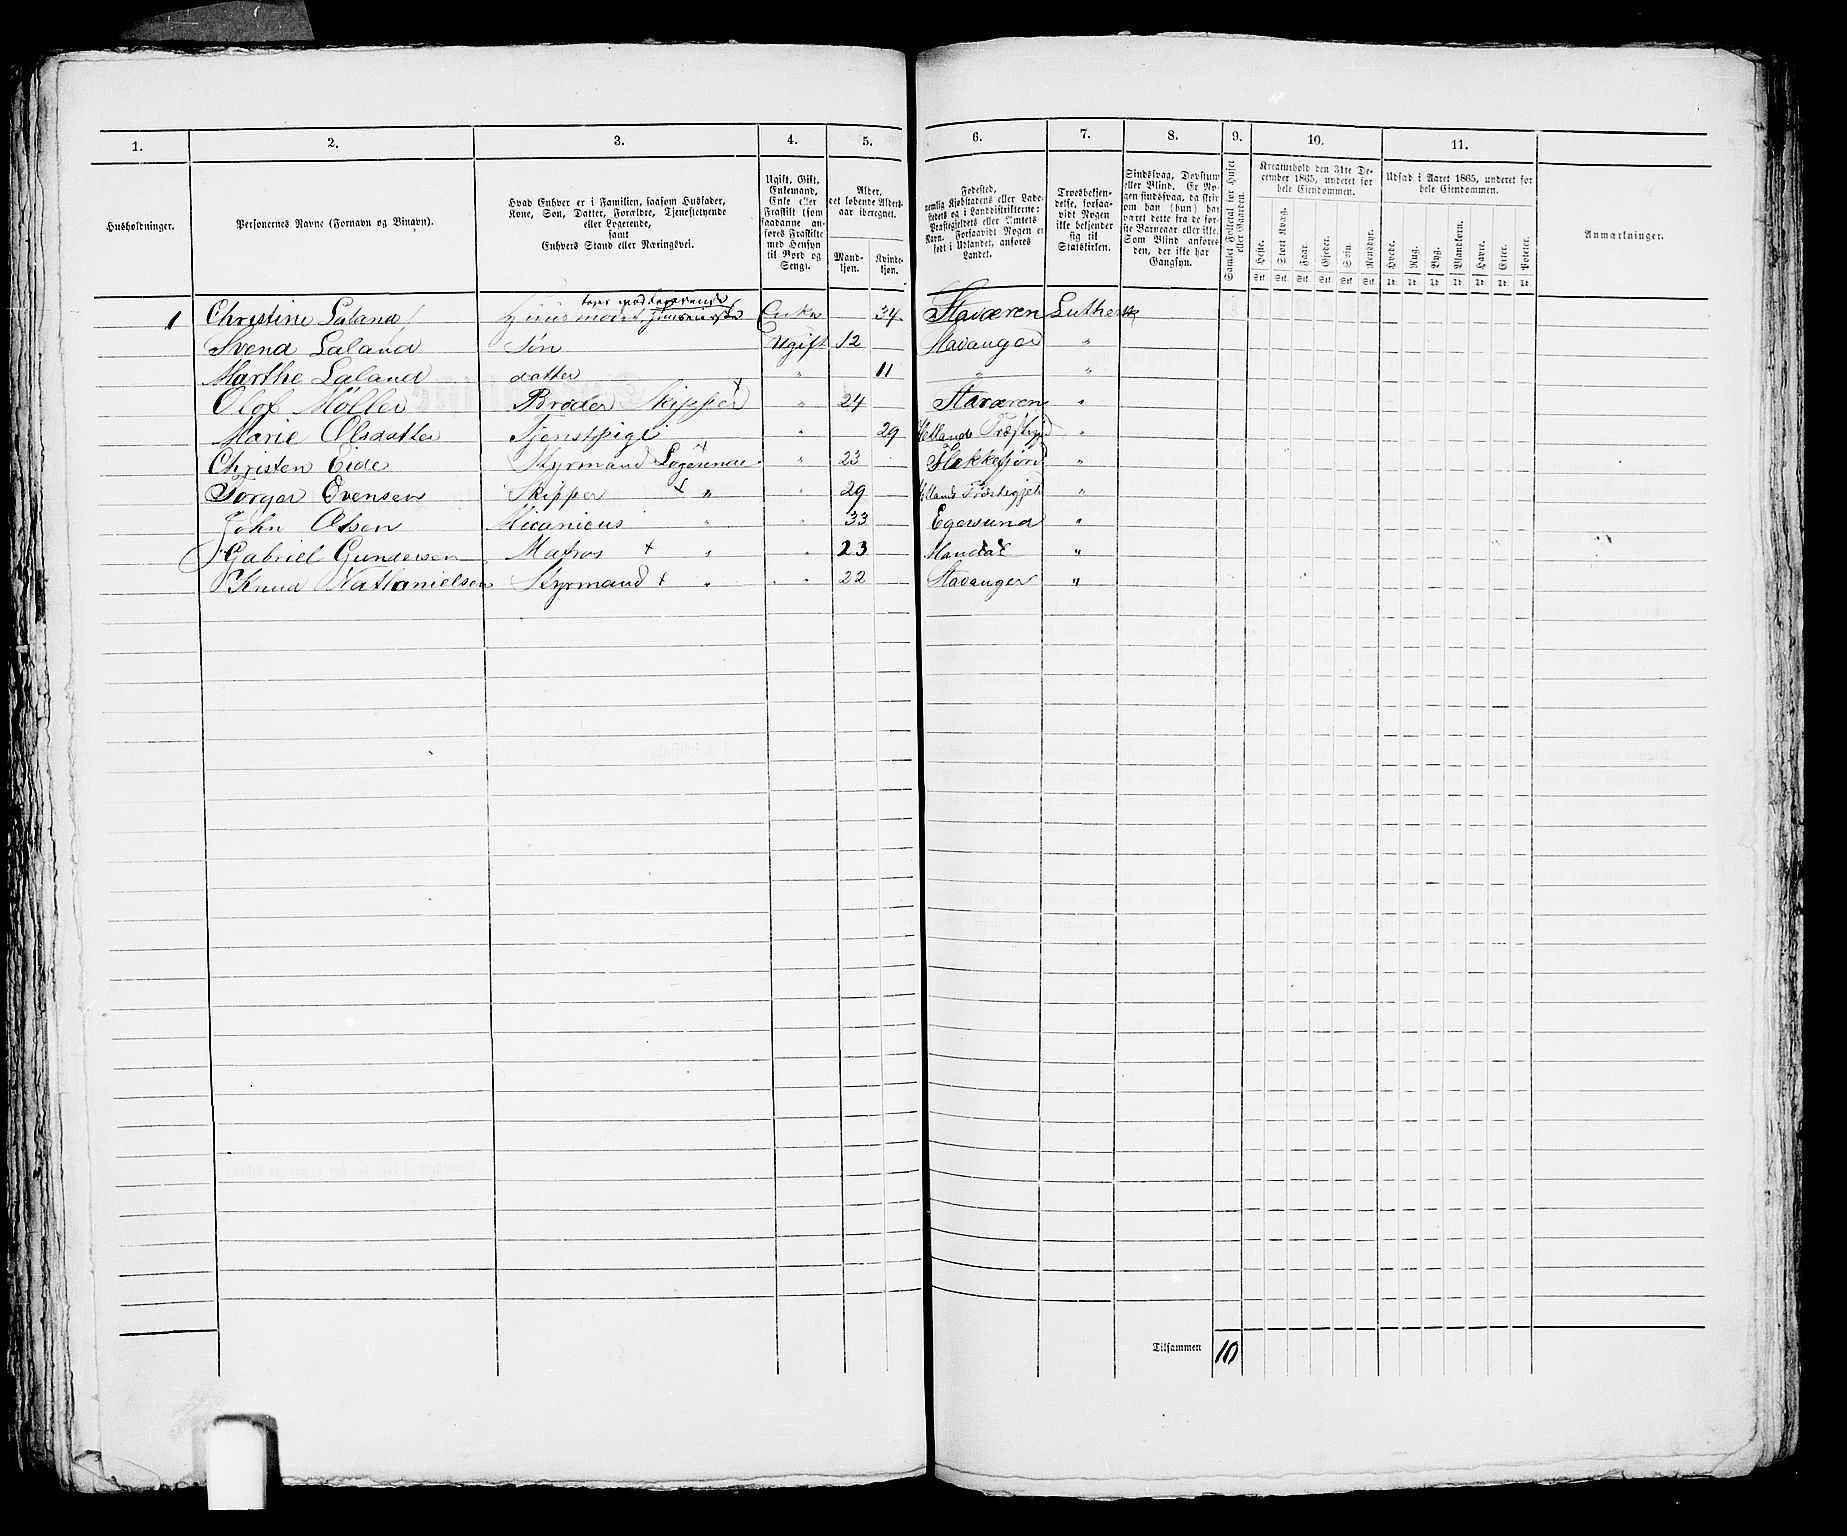 1. 2. 3. 4. 5. 6. 7. 8. 9. 10. 11.
Husholdninger.
Personernes Navne (Fornavn og Binavn).
Hvad Enhver er i Familien, saasom Husfader,
Kone, Søn, Datter, Forældre, Tjenestetyende
eller Logerende,
samt
Enhvers Stand eller Næringsvei.
Ugift, Gift,
Enkemand,
Enke eller
Fraskilt (som
saadanne an-
føres Fraskilte
med Hensyn
til Bord og
Seng).
Alder,
det løbende Alders-
aar iberegnet.
Mand-
kjøn.
Kvinde-
kjøn.
Fødested,
nemlig Kjøbstadens eller Lade-
stedets og i Landdistrikterne:
Præstegjeldets eller Amtets
Navn. Forsaavidt Nogen er
født i Udlandet, anføres
Landet.
Troesbekjen-
delse, forsaa-
vidt Nogen
ikke bekjender
sig til
Statskirken.
Sindssvag, Døvstum
eller Blind. Er No-
gen sindssvag, da skri-
ves om han (hun) har
været dette fra de før-
ste Barneaar eller ikke.
Som Blind anføres
den, der ikke har
Gangsyn.
Samlet Folketal for Huset
eller Gaarden.
Kreaturhold den 31te De-
cember 1865, underet for
hele Eiendommen.
Heste. Stort Kvæg. Faar. Gjeder. Svin. Rensdyr.
Stk. Stk. Stk. Stk. Stk. Stk.
Udsæd i Aaret 1865, underet for
hele Eiendommen.
Hvede. Rug. Byg. Blandkorn. Havre. Erter. Poteter.
Td. Td. Td. Td. Td. Td. Td.
Anmærkninger.
tager mod Logerende
1 Christine Laland Huusmoder Enke 34 Staværen Luthersk
Svend Laland Søn Ugift 12 Stavanger "
Marthe Laland datter " 11 " "
Olof Möller Broder Skipper " 24 Staværen "
Marie Olsdatter Tjenstpige " 29 Hetlands Præstegjd "
Christen Eide Styrmand Logerende " 23 Flekkefjord "
Torger Evensen Skipper + " " 29 Hetlands Præstegjeld "
John Olsen Micanicus " " 33 Egersund "
Gabriel Gundersen Matros + " " 23 Mandal "
Knud Nathanielsen Styrmand + " " 22 Stavanger "
Tilsammen 10